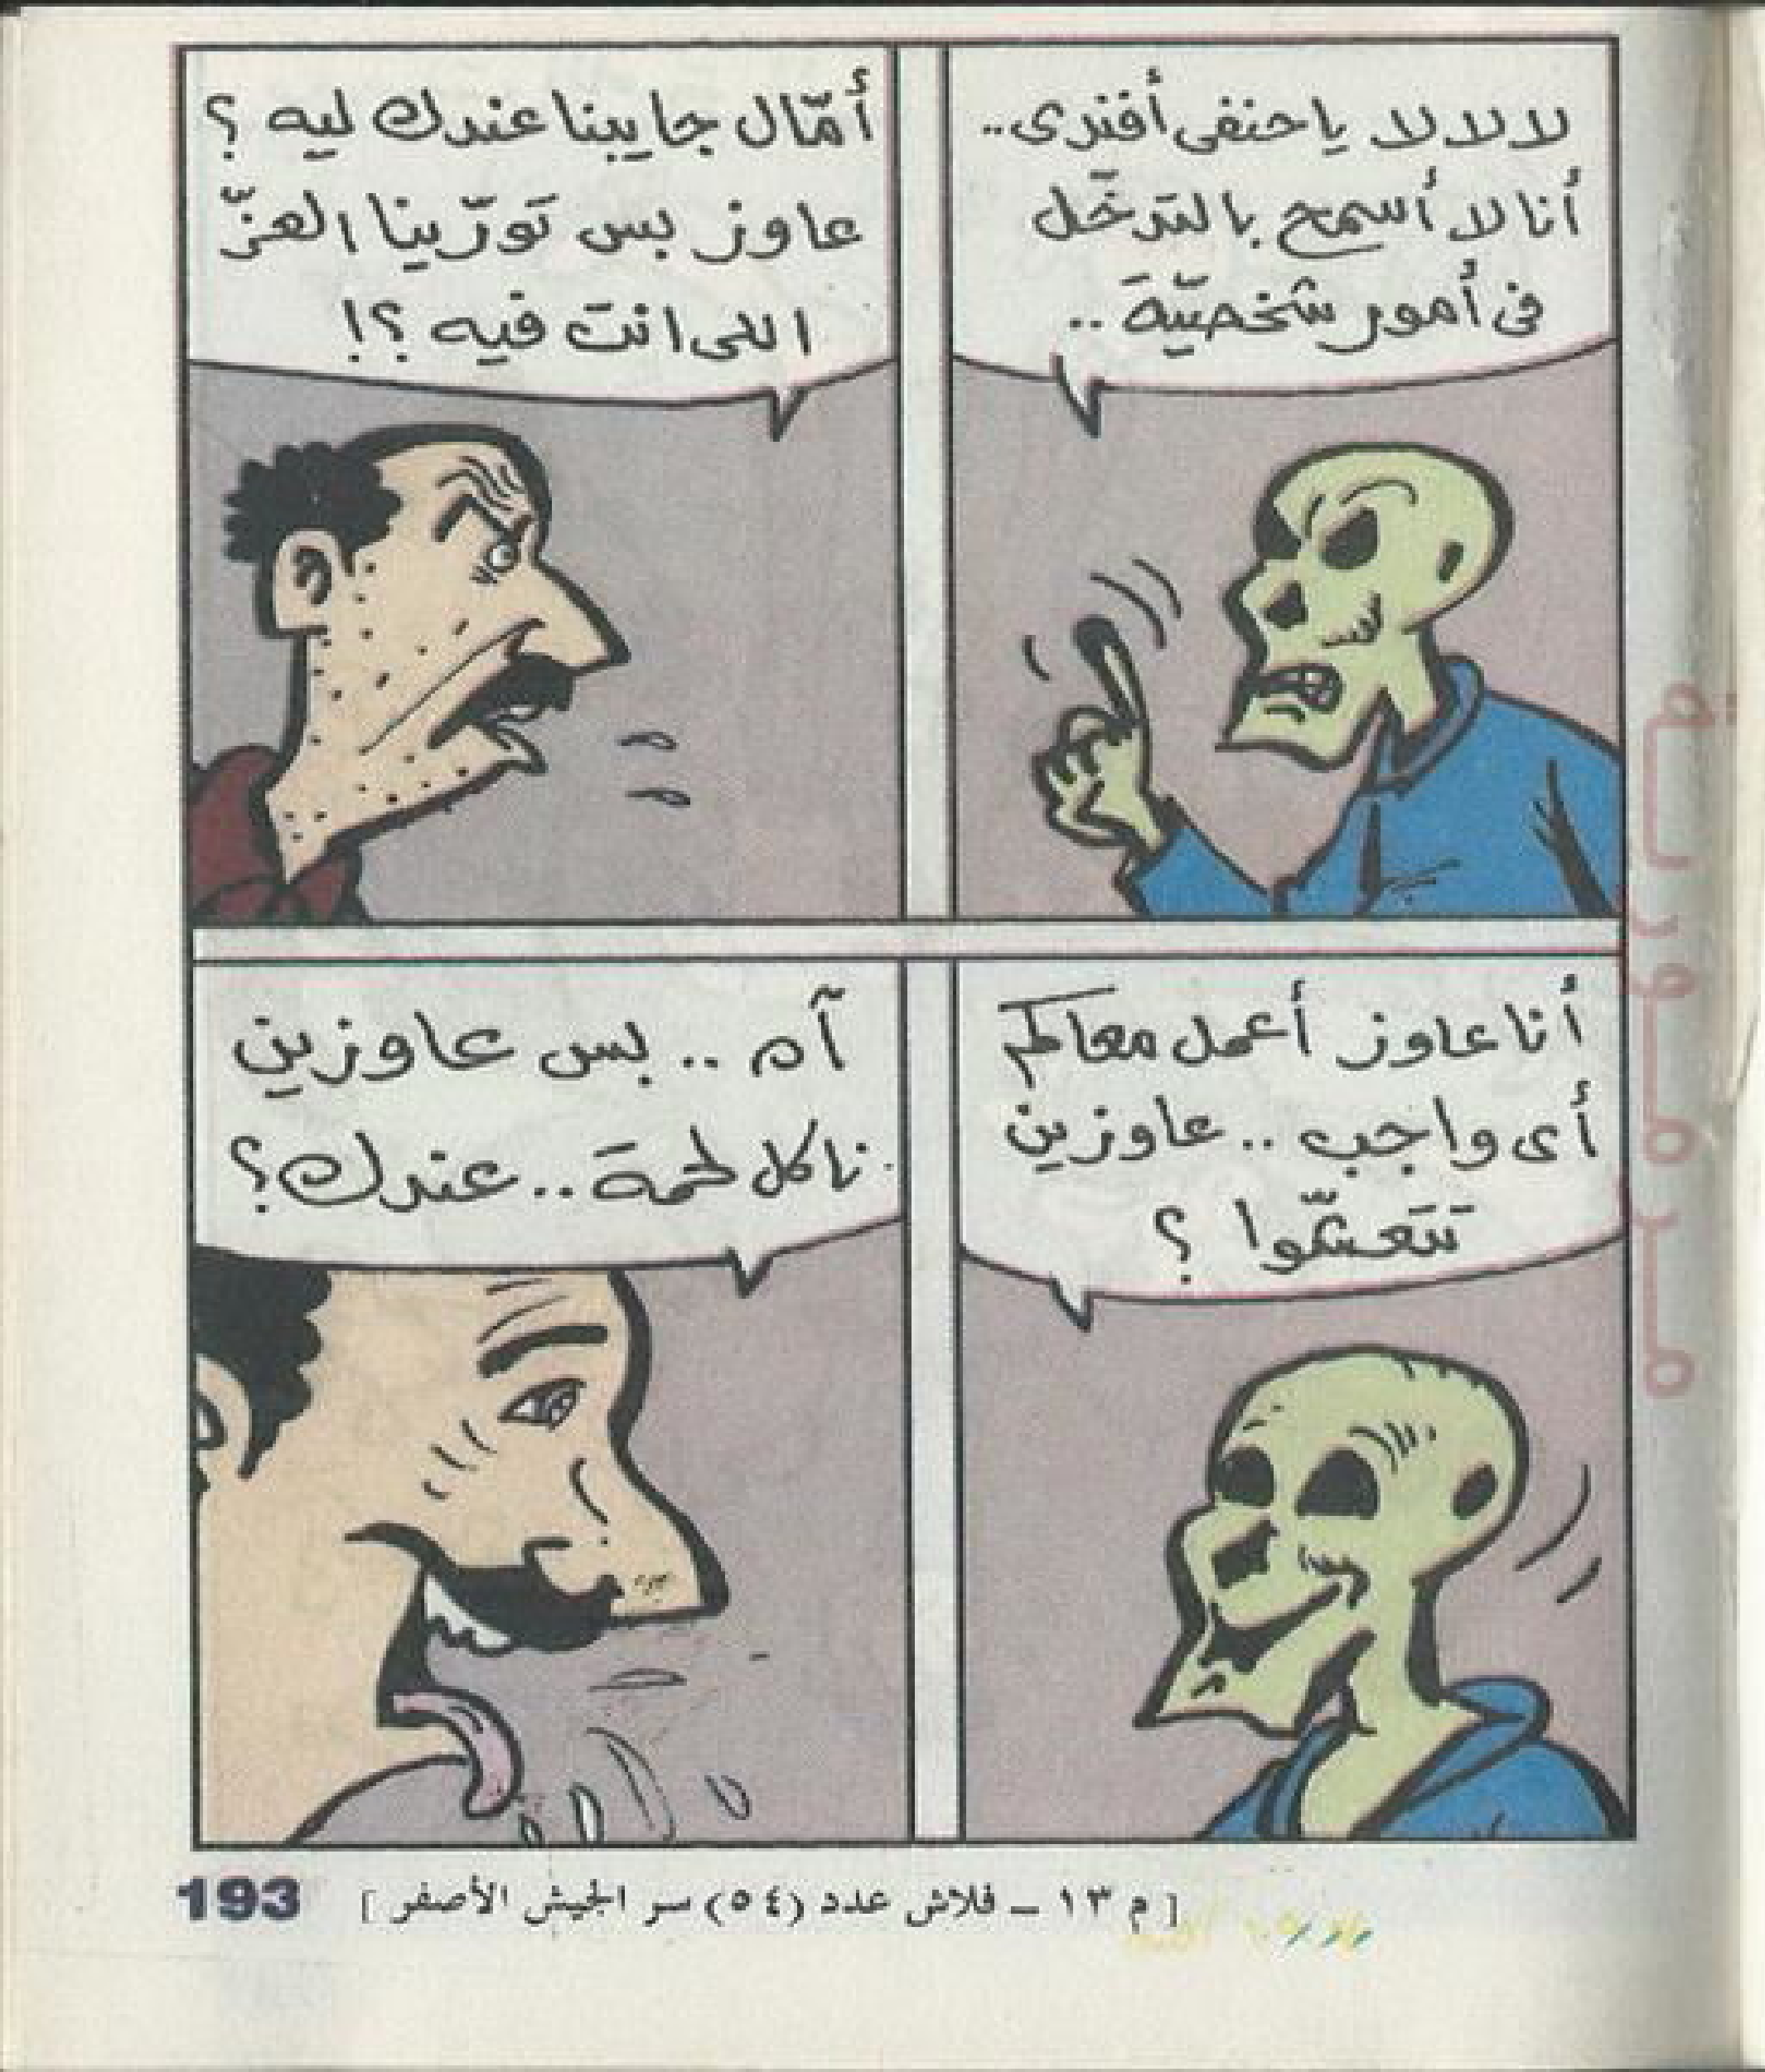 لا لا لا يا حنفى أفندى..
أنا لا أسمح بالتدخّل
فى أمور شخصيّة..
أمّال جايبنا عندك ليه ؟
عاوز بس تورّينا العزّ
اللى انت فيه ؟!
أنا عاوز أعمل معاكم
أى واجب .. عاوزين
تتعشّوا ؟
آه .. بس عاوزين
ناكل لحمة .. عندك ؟
[ م ١٣ – فلاش عدد (٥٤) سر الجيش الأصفر ]
193